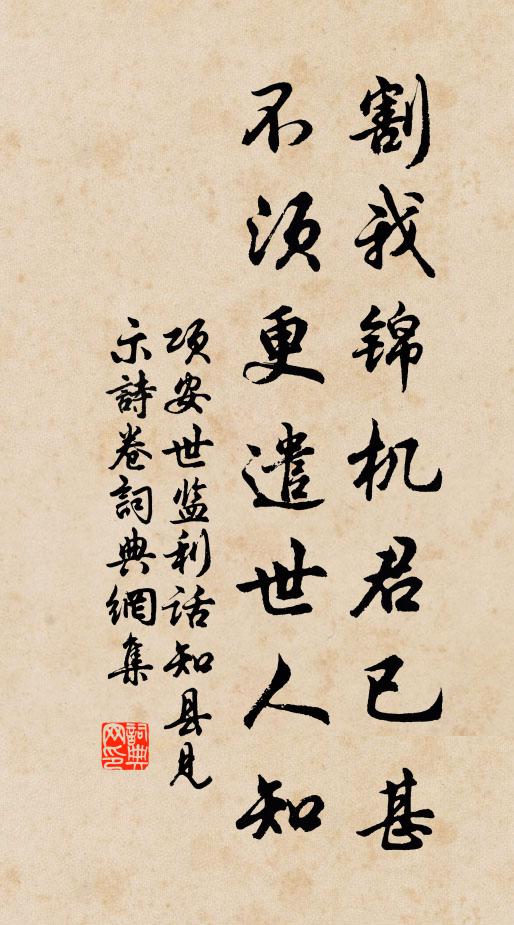 割我锦机君已甚
不须更遣世人知
项安世监利话知县见
示詩卷詞典網集
詞典网印